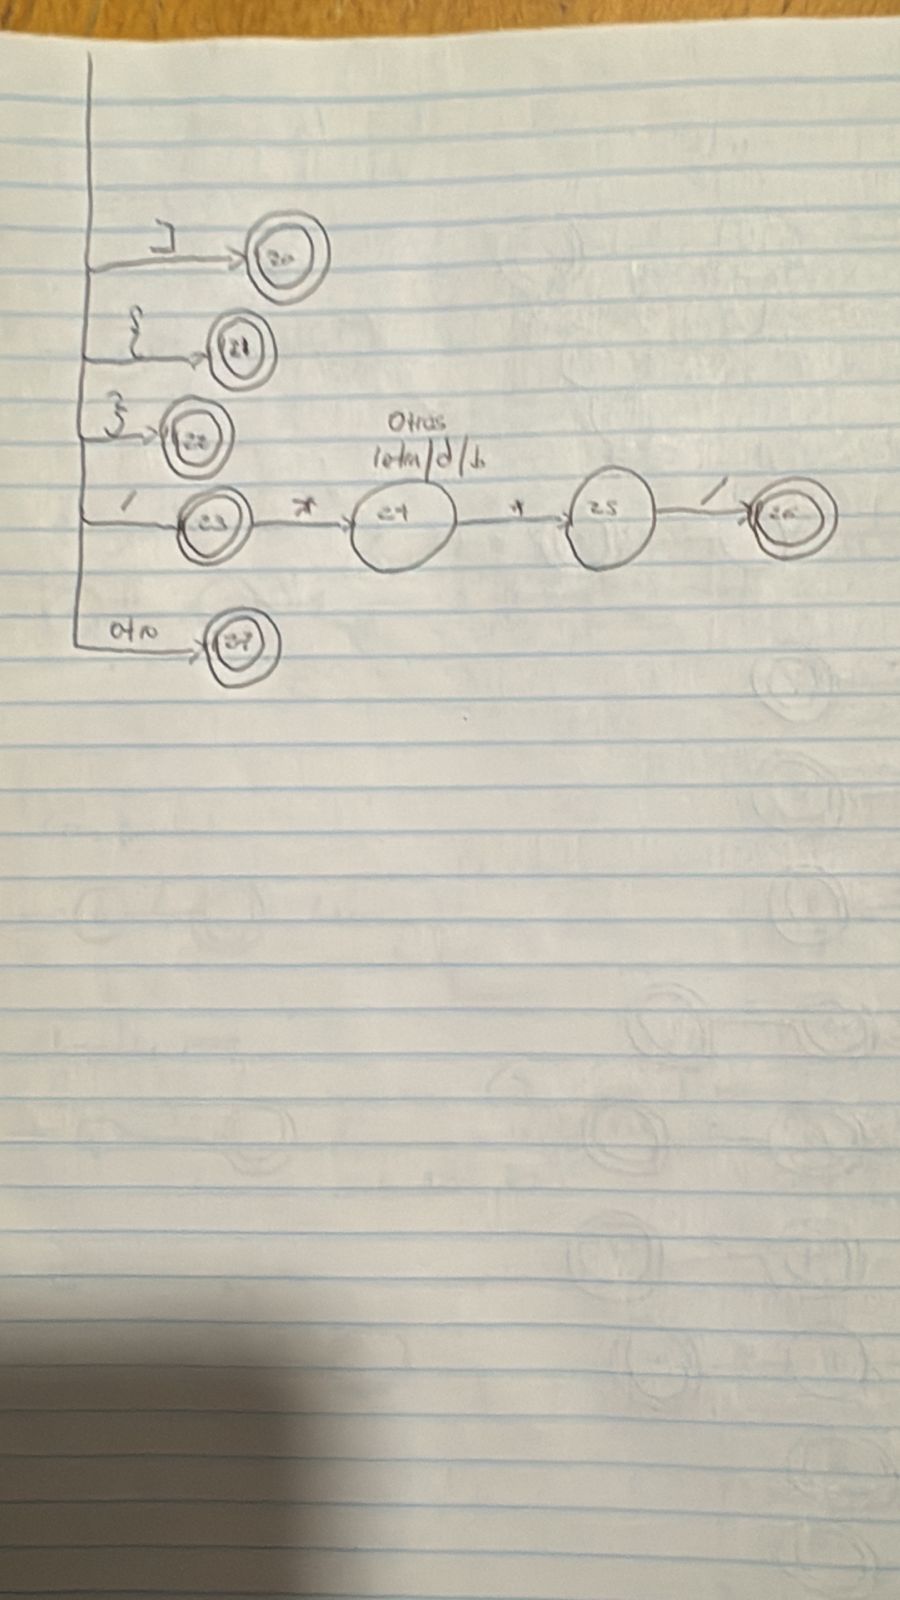 ]
20
{
21
}
22
Otros
letra/d/b
/ 23 * 24 * 25 / 26
otro
27